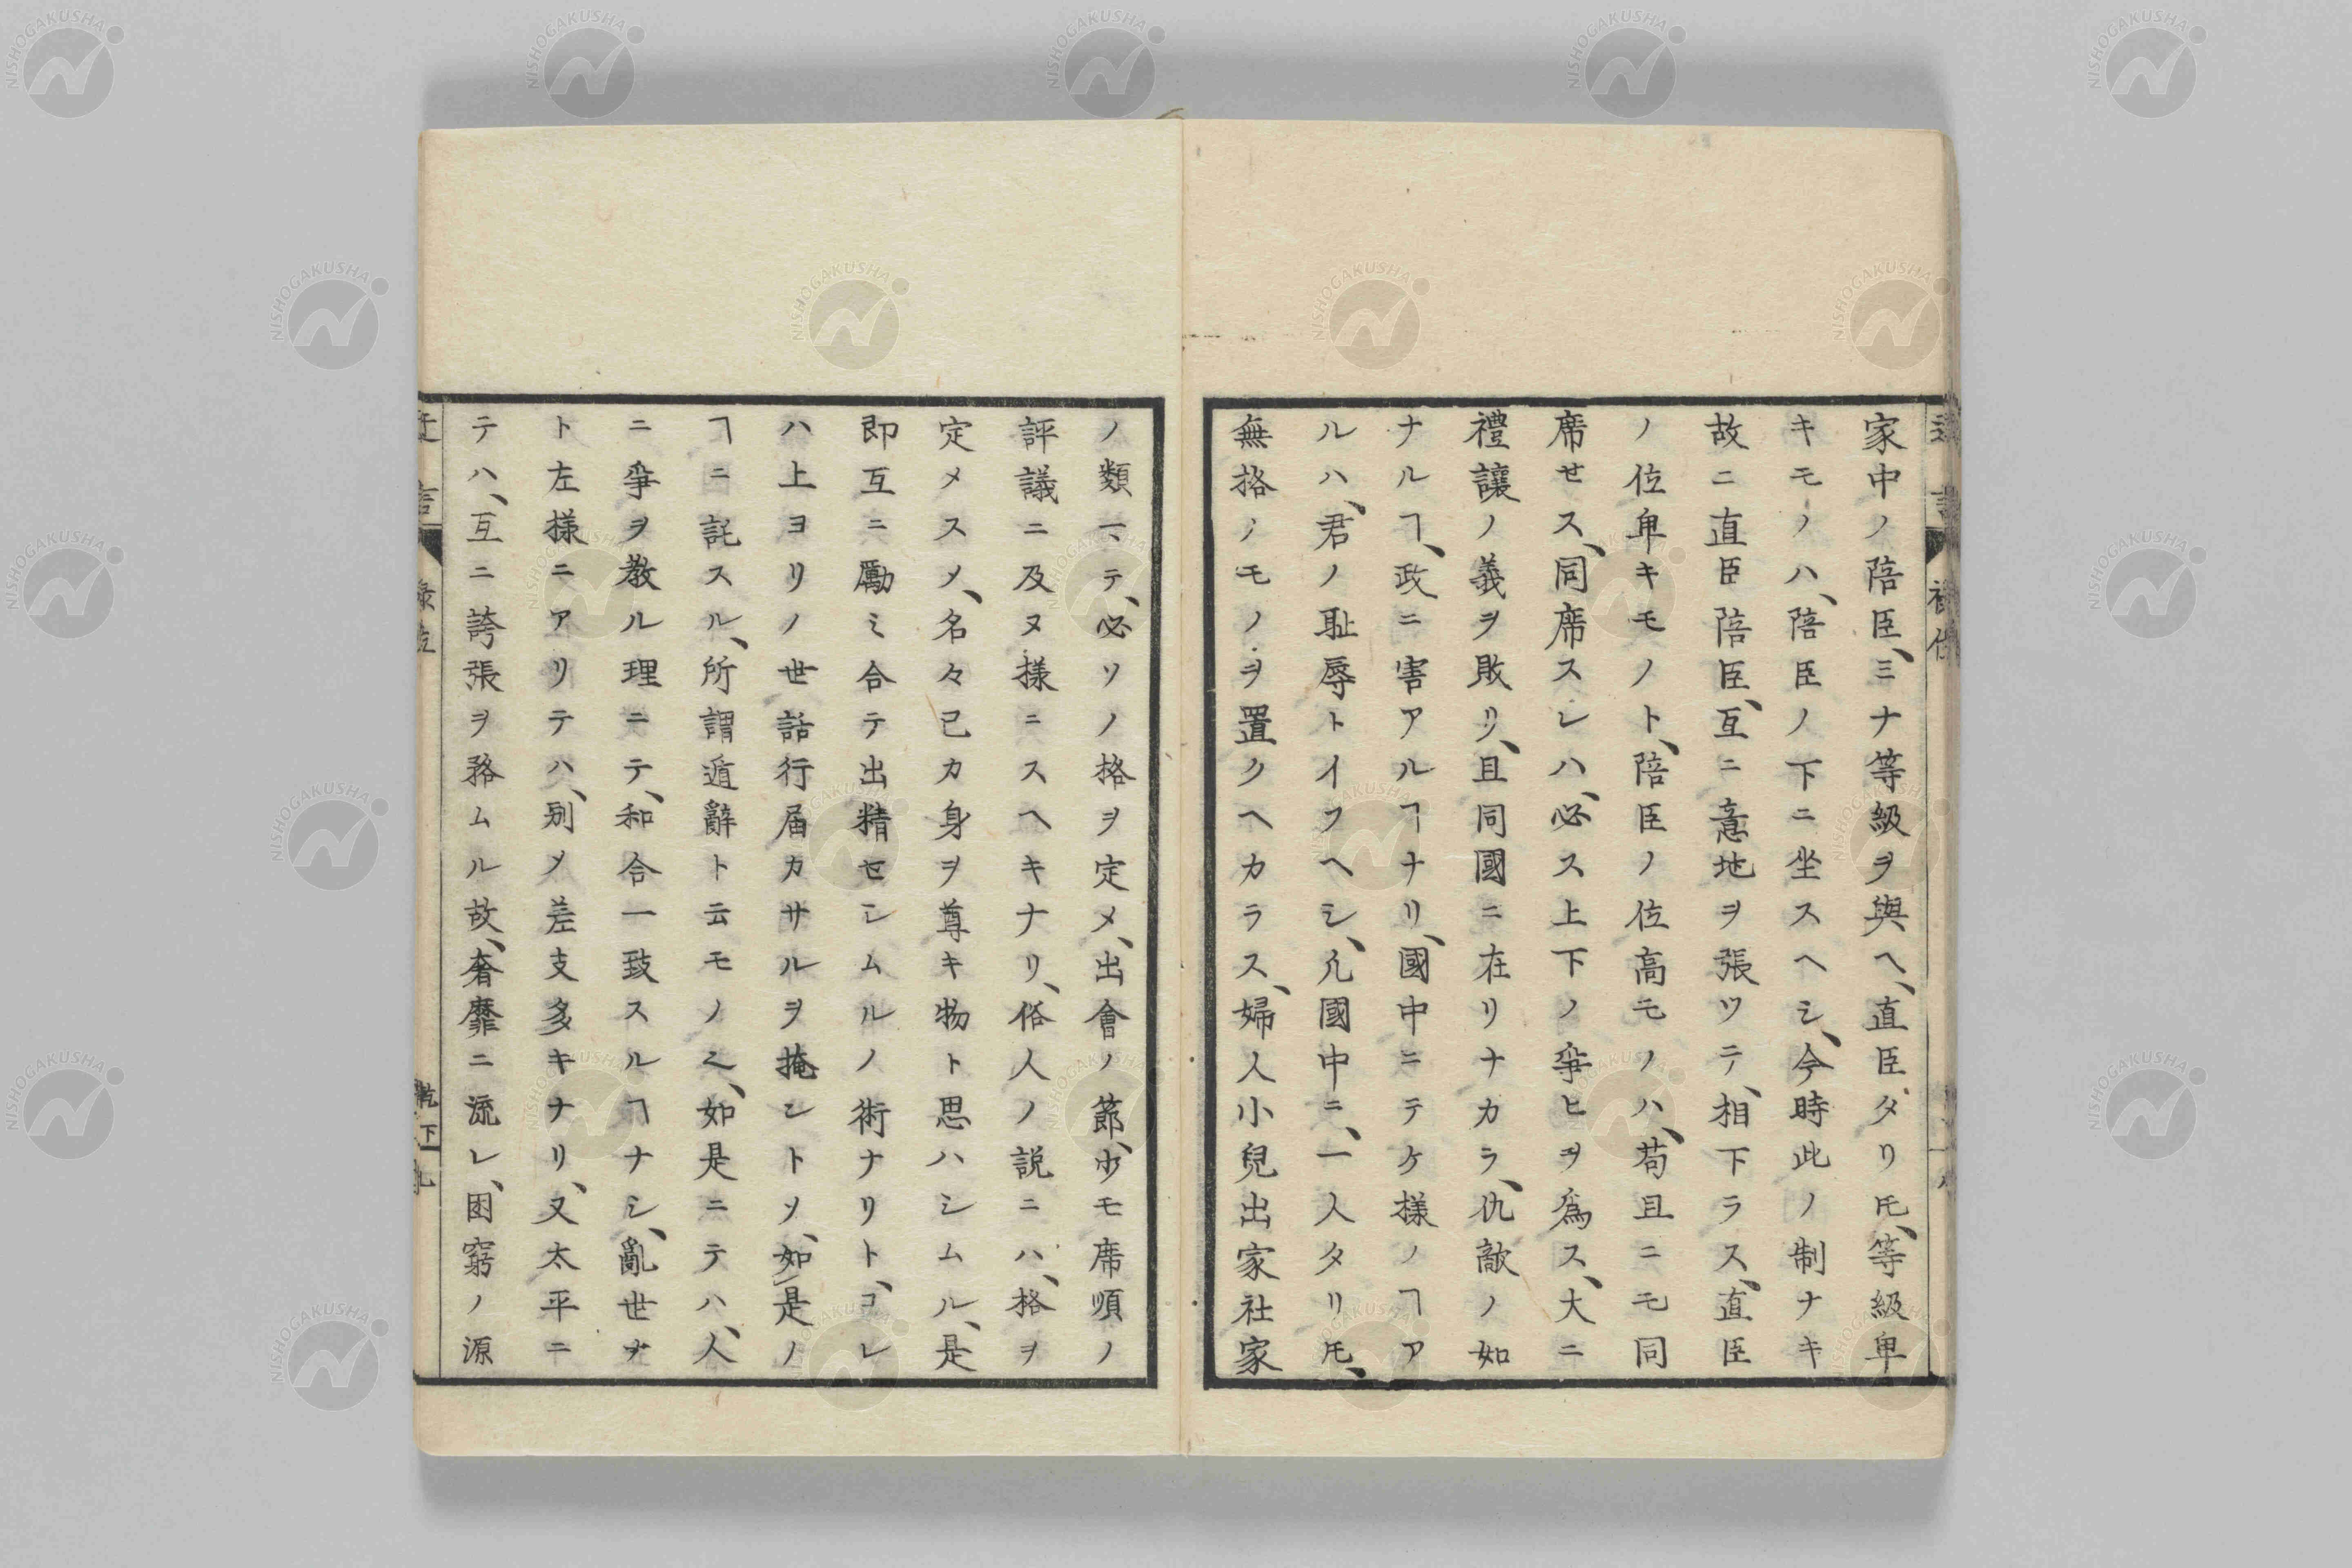 家中ノ陪臣、ミナ等級ヲ與ヘ、直臣タリ𪜈、等級卑
キモノハ、陪臣ノ下ニ坐スヘシ、今時此ノ制ナキ
故ニ直臣陪臣、互ニ意地ヲ張ツテ、相下ラス、直臣
ノ位卑キモノト、陪臣ノ位高モノハ、苟且ニモ同
席セス、同席スレハ、必ス上下ノ爭ヒヲ爲ス、大ニ
禮讓ノ義ヲ敗リ、且同國ニ在リナカラ、仇敵ノ如
ナルヿ、政ニ害アルヿナリ、國中ニテケ樣ノヿア
ルハ、君ノ耻辱トイフヘシ、凡國中ニ、一人タリ𪜈、
無格ノモノヲ置クヘカラス、婦人小兒出家社家
ノ類マテ、必ソノ格ヲ定メ、出會ノ節、少モ席順ノ
評議ニ及ヌ樣ニスヘキナリ、俗人ノ説ニハ、格ヲ
定メスメ、名々己カ身ヲ尊キ物ト思ハシムル、是
即互ニ勵ミ合テ出精セシムルノ術ナリト、コレ
ハ上ヨリノ世話行届カサルヲ掩ントソ、如是ノ
ヿニ託スル、所謂遁辭ト云モノ之、如是ニテハ、人
ニ爭ヲ教ル理ニテ、和合一致スルヿナシ、亂世ナ
ト左樣ニアリテハ、別メ差支多キナリ、又太平ニ
テハ、互ニ誇張ヲ務ムル故、奢靡ニ流レ、困窮ノ源
言
乾下
NISHOGAKUSHA